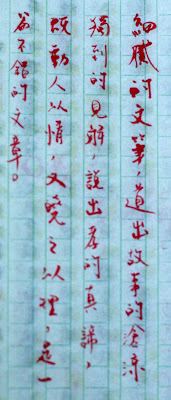 細膩的文筆，道出故事的滄涼
獨到的見解，說出孝的真諦，
既動人以情，又曉之以理，是一
篇不錯的文章。